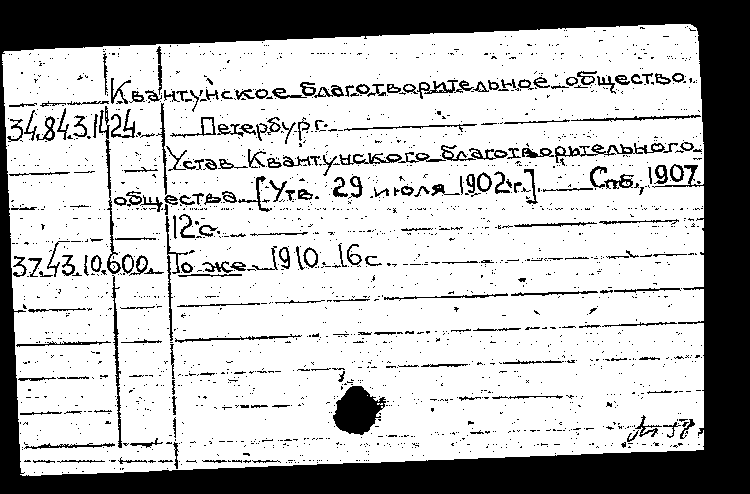 Квантунское благотворительное общество.
34.84.3.1424. Петербург.
Устав Квантунского благотворительного
общества. [Утв. 29 июля 1902 г.]. Спб., 1907.
12 с.
37.43.10.600. То же. 1910. 16 с.